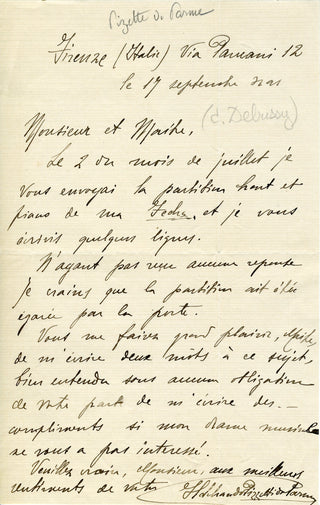 Pizetti de Parme
Firenze (Italie) Via Pancani 12
le 17 septembre
(C. Debussy)
Monsieur et Maître,
Le 2 du mois de juillet je
vous envoyai la partition chant et
piano de ma Fedra, et je vous
écrivis quelques lignes.
N'ayant pas reçu aucune reponse
je crains que la partition ait étée
égarée par la poste.
Vous me faisez grand plaisir,
de m'écrire deux mots à ce sujet,
bien entendu sans aucune obligation
de votre part de m'écrire des
compliments si mon drame musicale
ne vous a pas interessé.
Veuillez croire, Monsieur, aux meilleurs
sentiments de votre Ildebrando Pizzetti da Parma